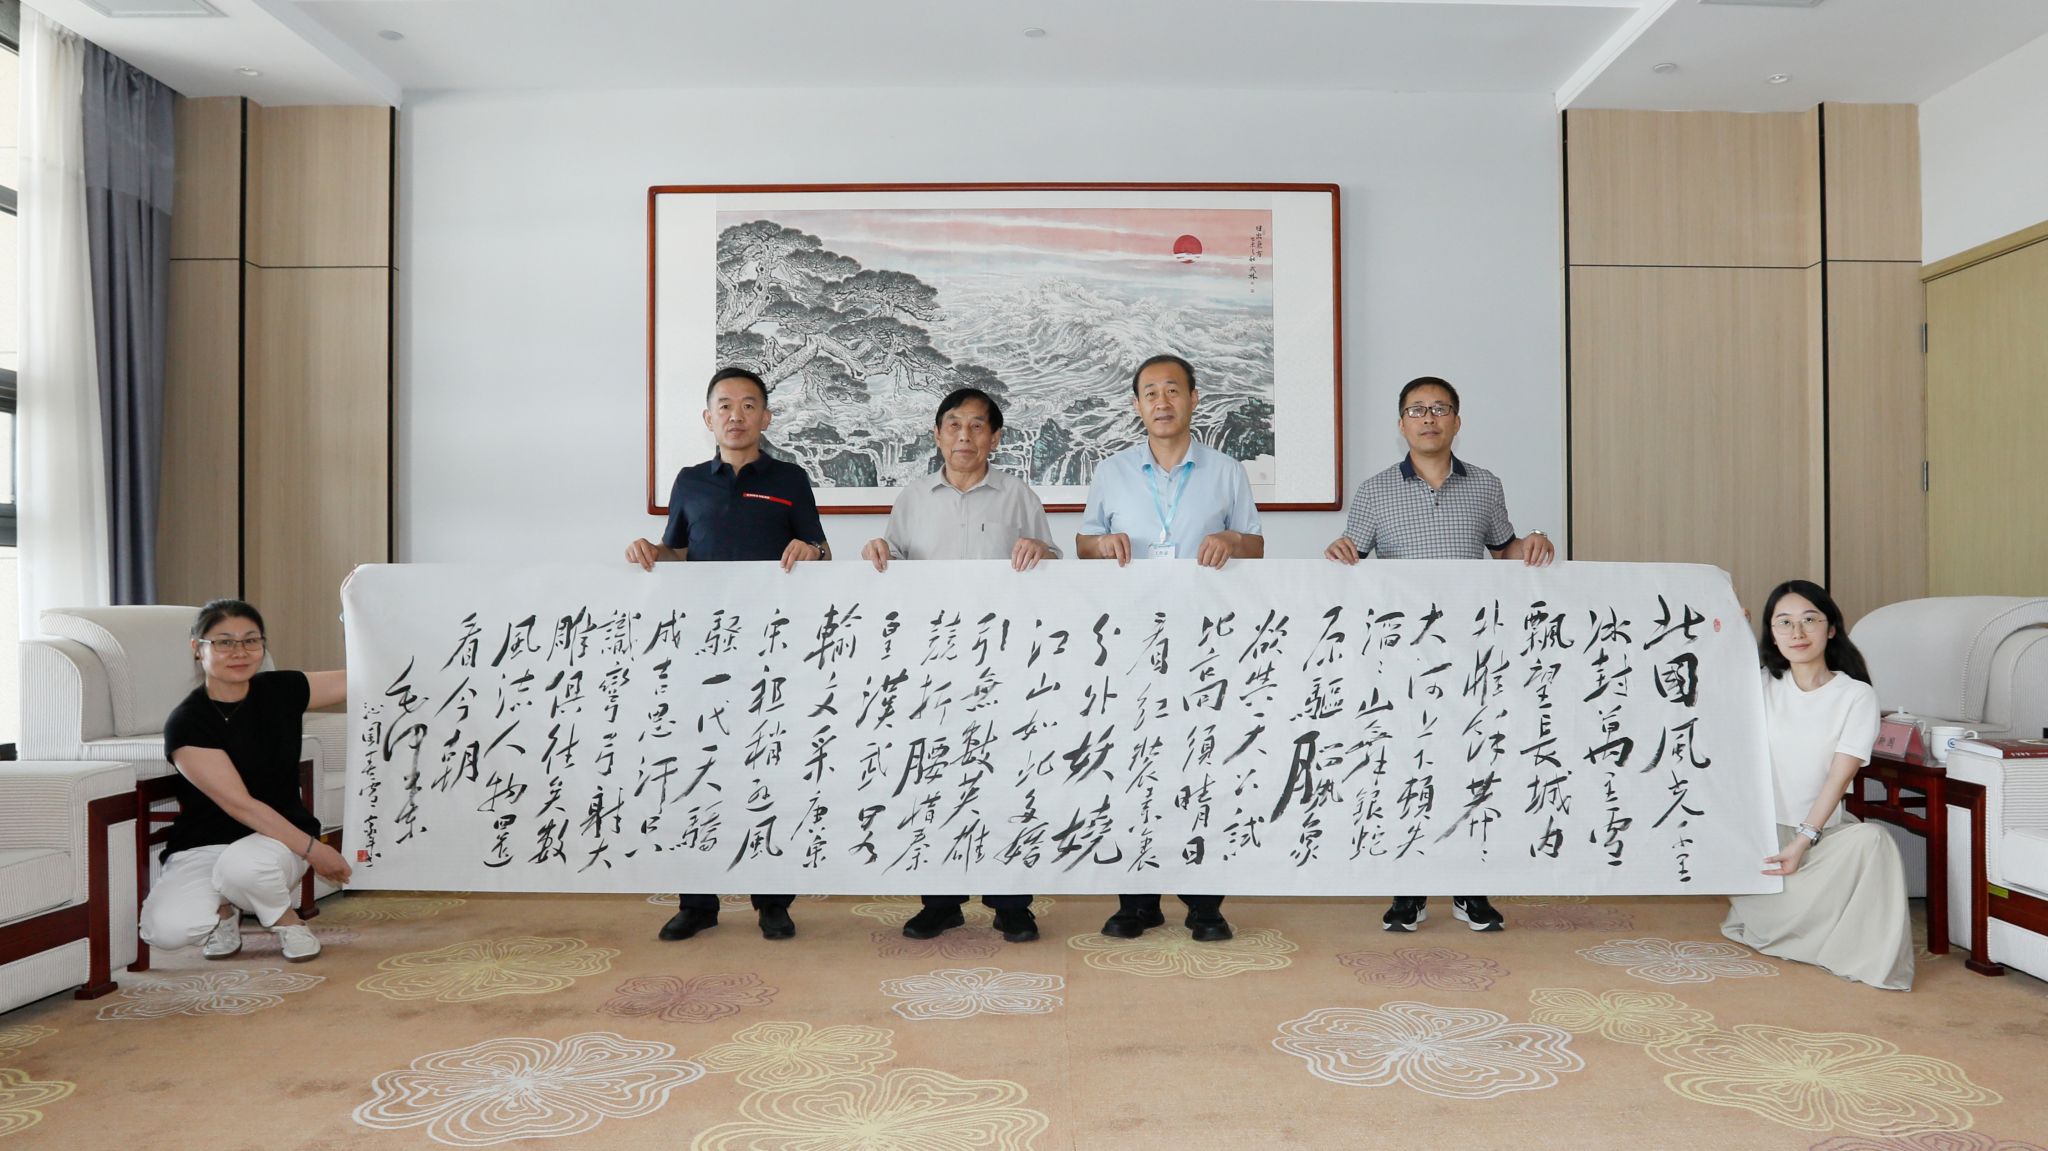 日出東方
北國風光千里
冰封萬里雪
飄望長城内
外惟餘莽〻
大河上下頓失
滔〻山舞銀蛇
原驅臘象
欲與天公試
比高須晴日
看紅裝素裹
分外妖嬈
江山如此多嬌
引無數英雄
競折腰惜秦
皇漢武畧
輸文采唐宗
宋祖稍遜風
騷一代天驕
成吉思汗只
識彎弓射大
雕俱往矣數
風流人物還
看今朝
毛澤東
沁園春雪